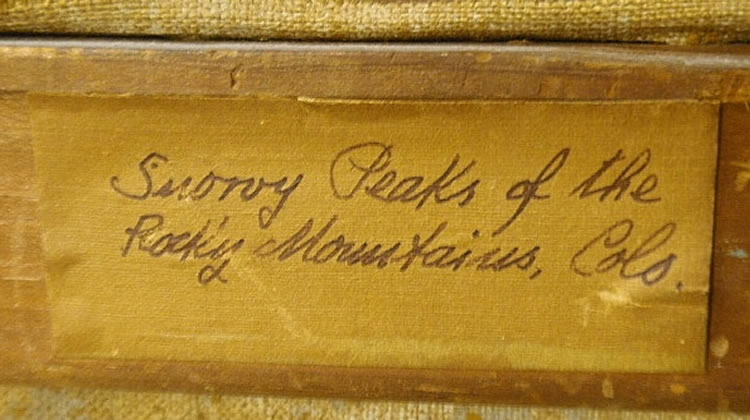 Snowy Peaks of the
Rocky Mountains, Colo.